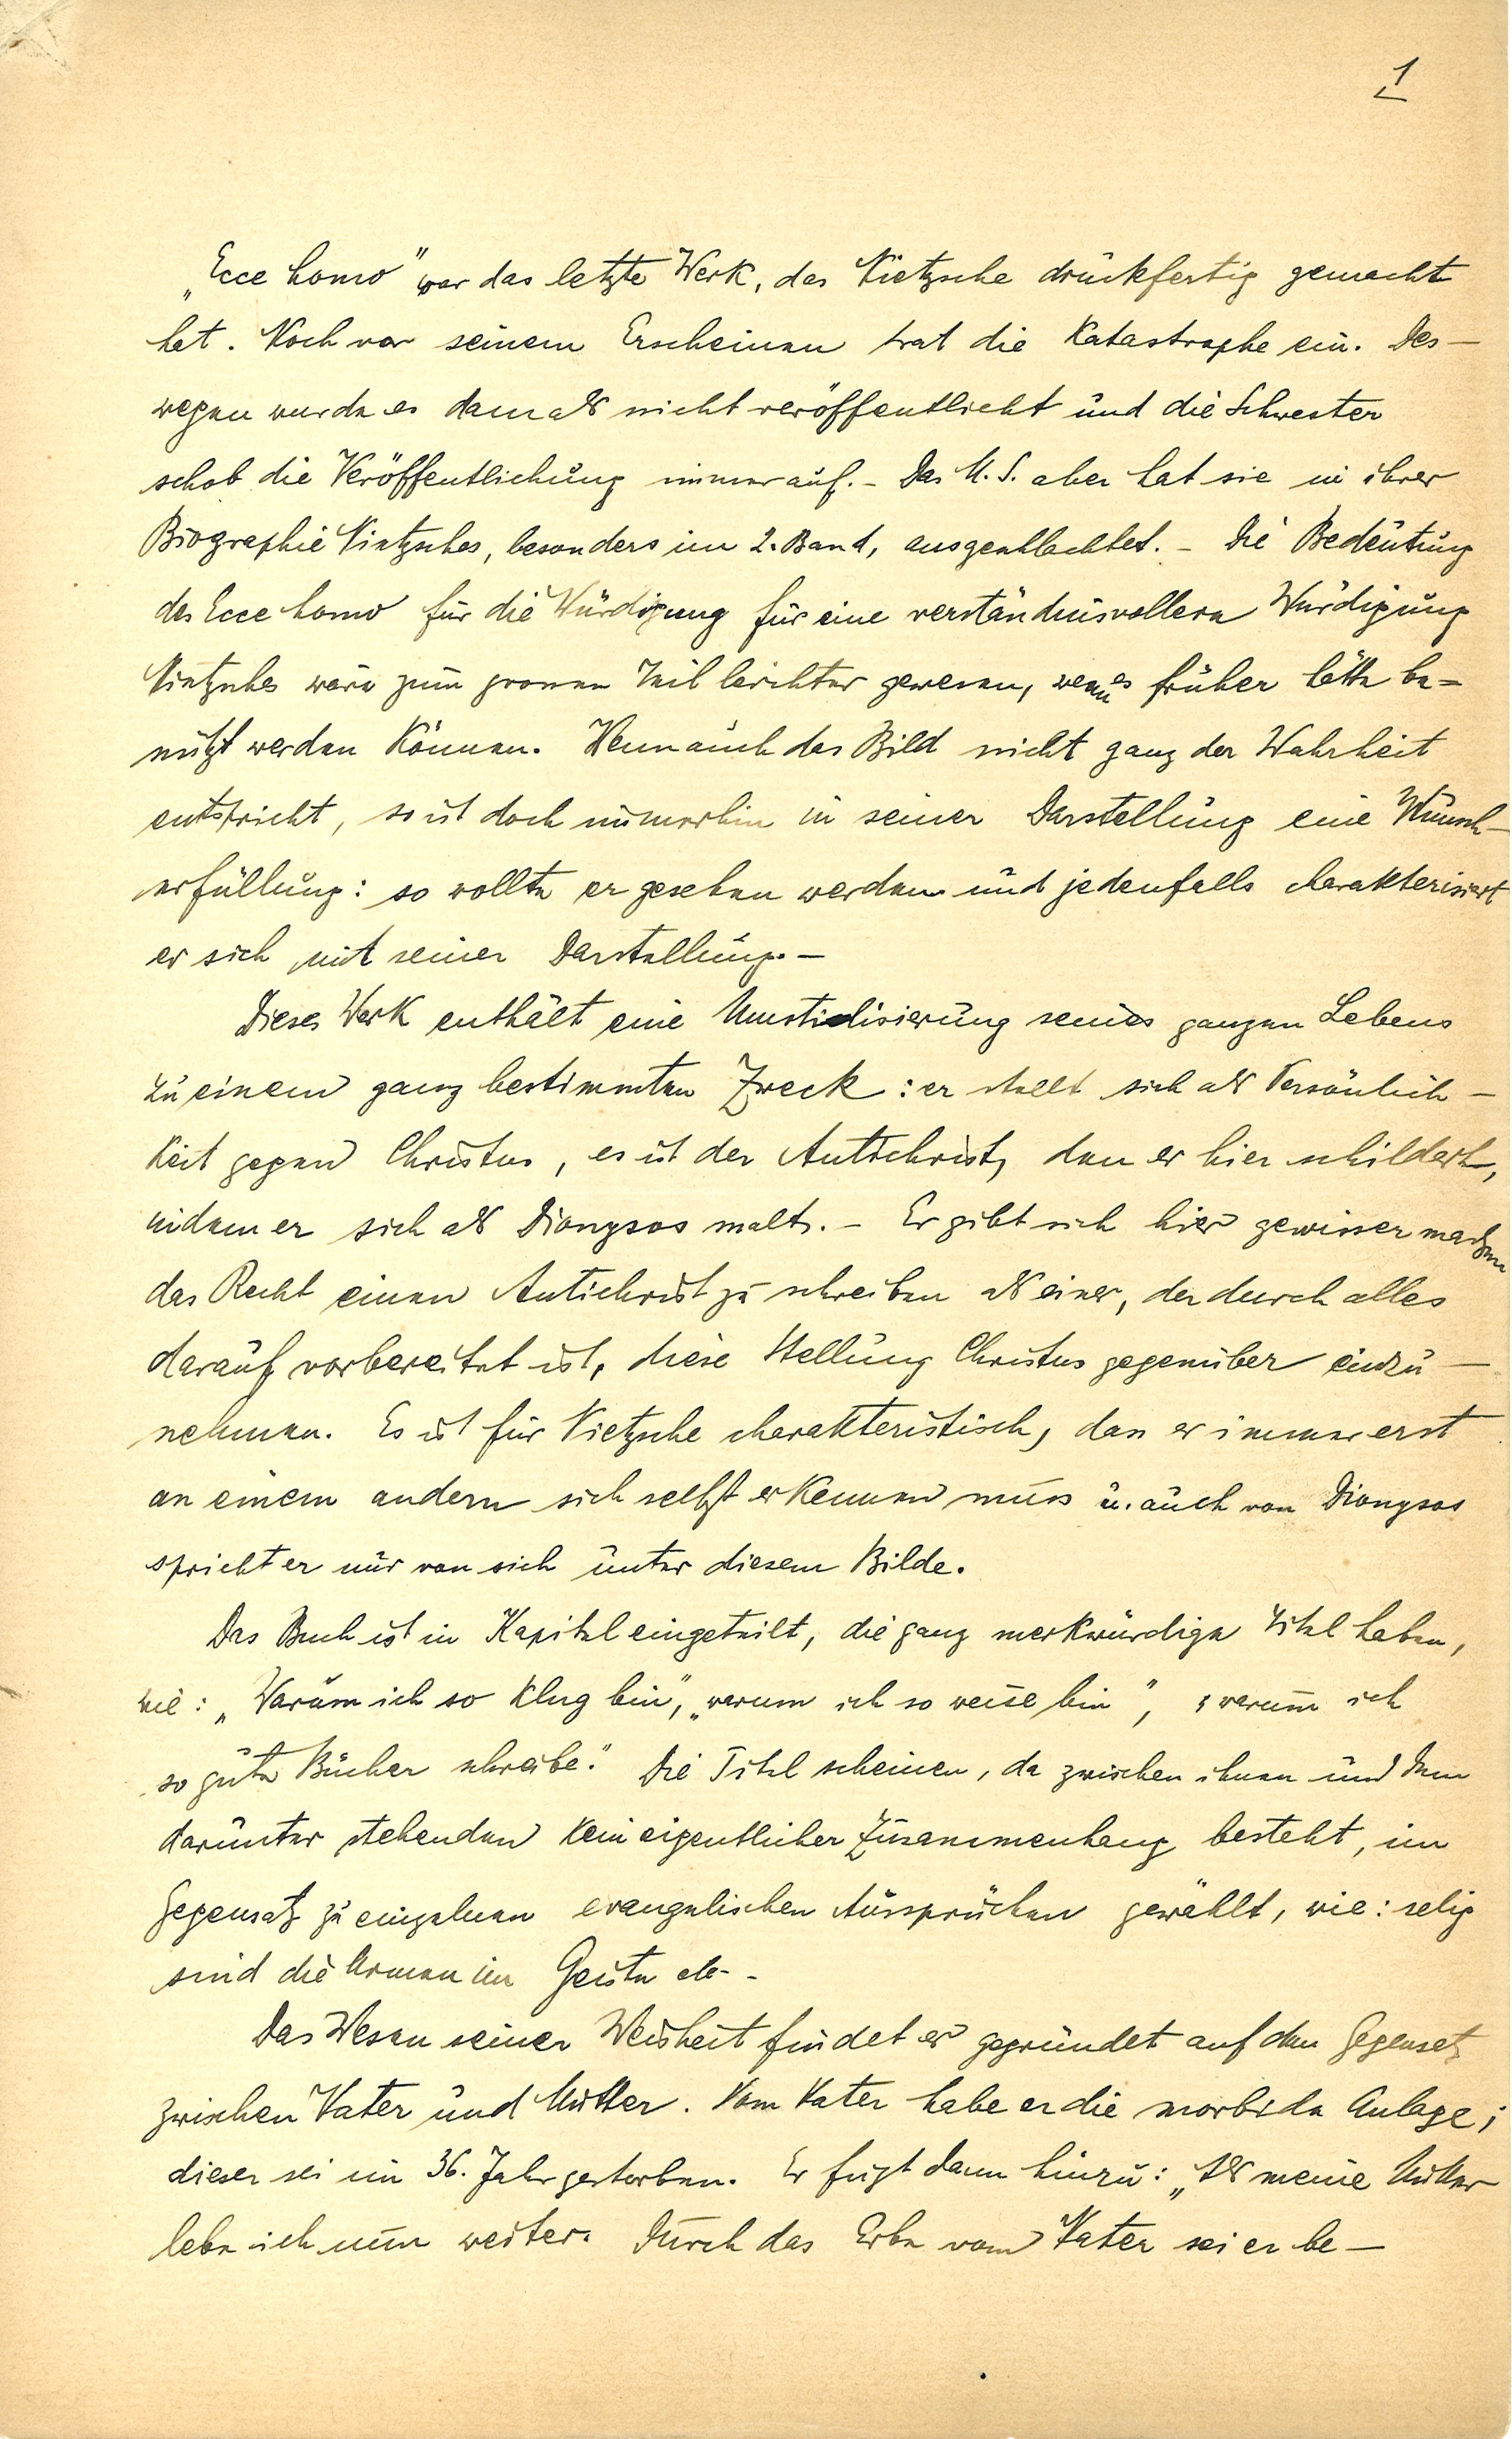 1
„Ecce homo" war das letzte Werk, das Nietzsche druckfertig gemacht
hat. Noch vor seinem Erscheinen trat die Katastrophe ein. Des-
wegen wurde es damals nicht veröffentlicht und die Schwester
schob die Veröffentlichung immer auf. – Das M.S. aber hat sie in ihrer
Biographie Nietzsches, besonders im 2. Band, ausgeschlachtet. – Die Bedeutung
des Ecce homo für die Würdigung für eine verständnisvollere Würdigung
Nietzsches wäre zum grossen Teil leichter gewesen, wenn es früher hätte be-
nützt werden können. Wenn auch das Bild nicht ganz der Wahrheit
entspricht, so ist doch immerhin in seiner Darstellung eine Wunsch-
erfüllung: so wollte er gesehen werden und jedenfalls charakterisiert
er sich mit seiner Darstellung. –
Dieses Werk enthält eine Umstilisierung seines ganzen Lebens
zu einem ganz bestimmten Zweck: er stellt sich als Persönlich-
keit gegen Christus, es ist der Antichrist, den er hier schildert,
indem er sich als Dionysos malt. – Er gibt sich hier gewissermaßen
das Recht einen Antichrist zu schreiben als einer, der durch alles
darauf vorbereitet ist, diese Stellung Christus gegenüber einzu-
nehmen. Es ist für Nietzsche charakteristisch, dass er immer erst
an einem andern sich selbst erkennen muss u. auch von Dionysos
spricht er nur von sich unter diesem Bilde.
Das Buch ist in Kapitel eingeteilt, die ganz merkwürdige Titel haben,
wie: „Warum ich so klug bin", „warum ich so weise bin", „warum ich
so gute Bücher schreibe." Die Titel scheinen, da zwischen ihnen und dem
darunter stehenden kein eigentlicher Zusammenhang besteht, im
Gegensatz zu einzelnen evangelischen Aussprüchen gewählt, wie: selig
sind die Armen im Geiste etc. –
Das Wesen seiner Weisheit findet er gegründet auf den Gegensatz
zwischen Vater und Mutter. Vom Vater habe er die morbide Anlage;
dieser sei im 36. Jahr gestorben. Er fügt dann hinzu: „Als meine Mutter
lebe ich nun weiter. Durch das Erbe vom Vater sei er be-